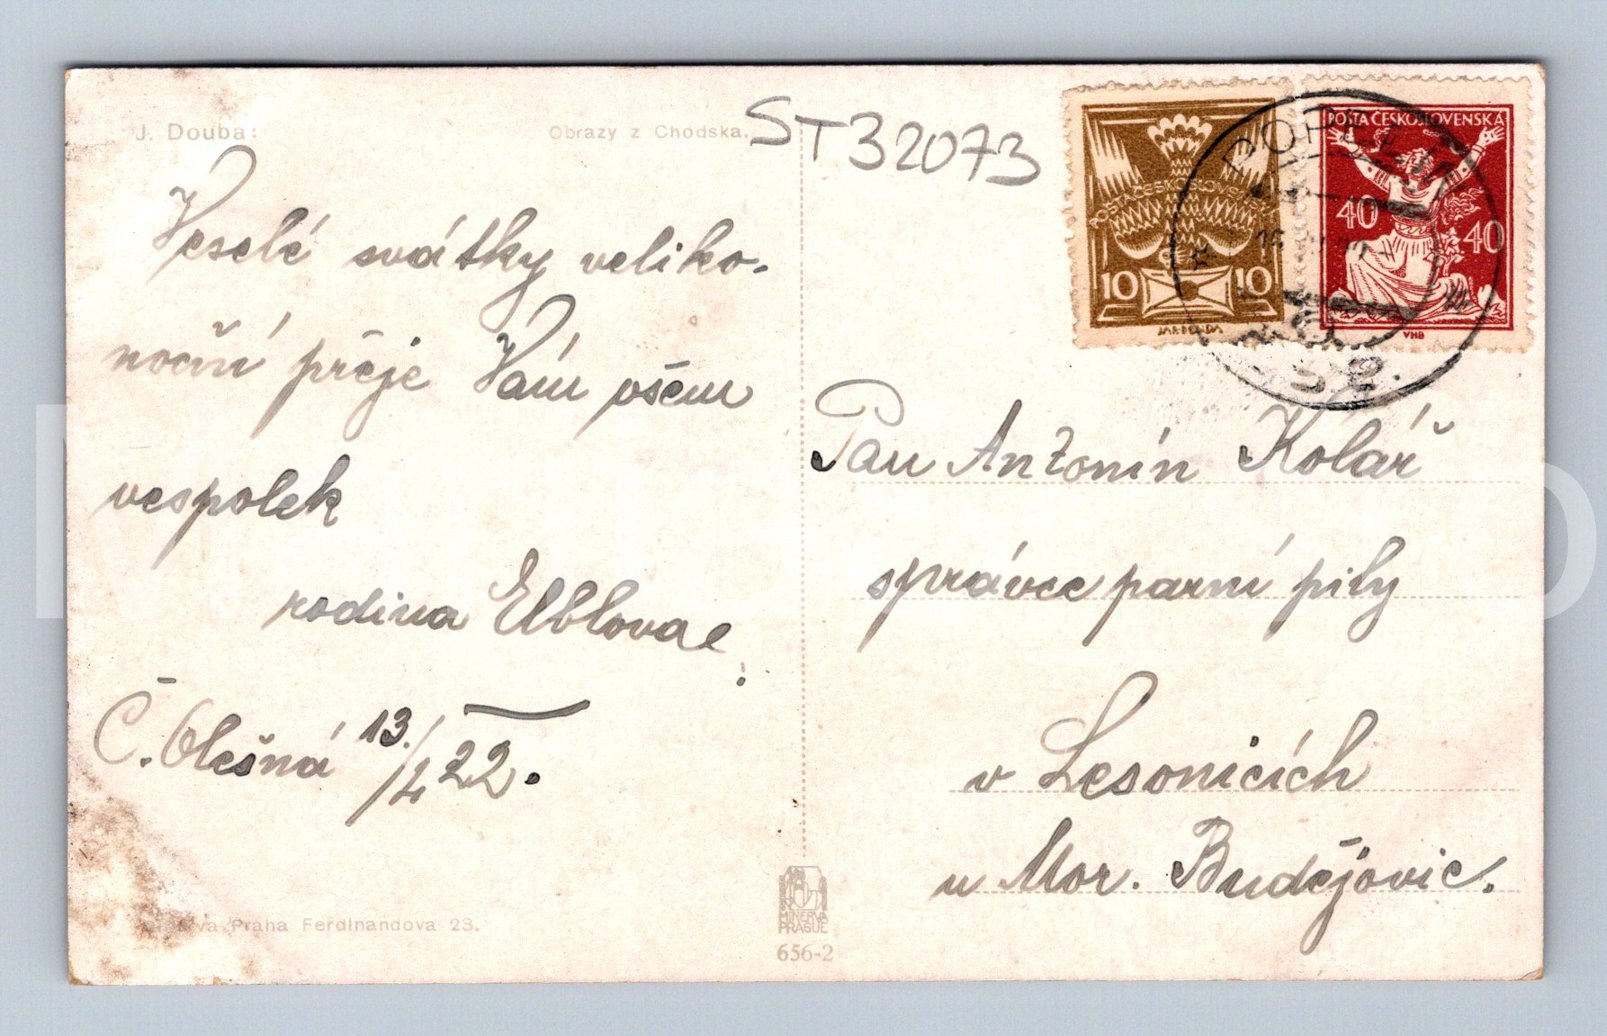 J. Douba:
Obrazy z Chodska.
ST32073
Veselé svátky veliko-
noční přeje Vám všem
vespolek
rodina Elblova
Č. Olešná 13./4 22.
POŠTA ČESKOSLOVENSKÁ
10 10
POŠTA ČESKOSLOVENSKÁ
40 40
VHB
Pan Antonín Kolář
správce parní pily
v Lesonicích
u Mor. Budějovic.
Praha Ferdinandova 23.
MINERVA
PRAGUE
656-2